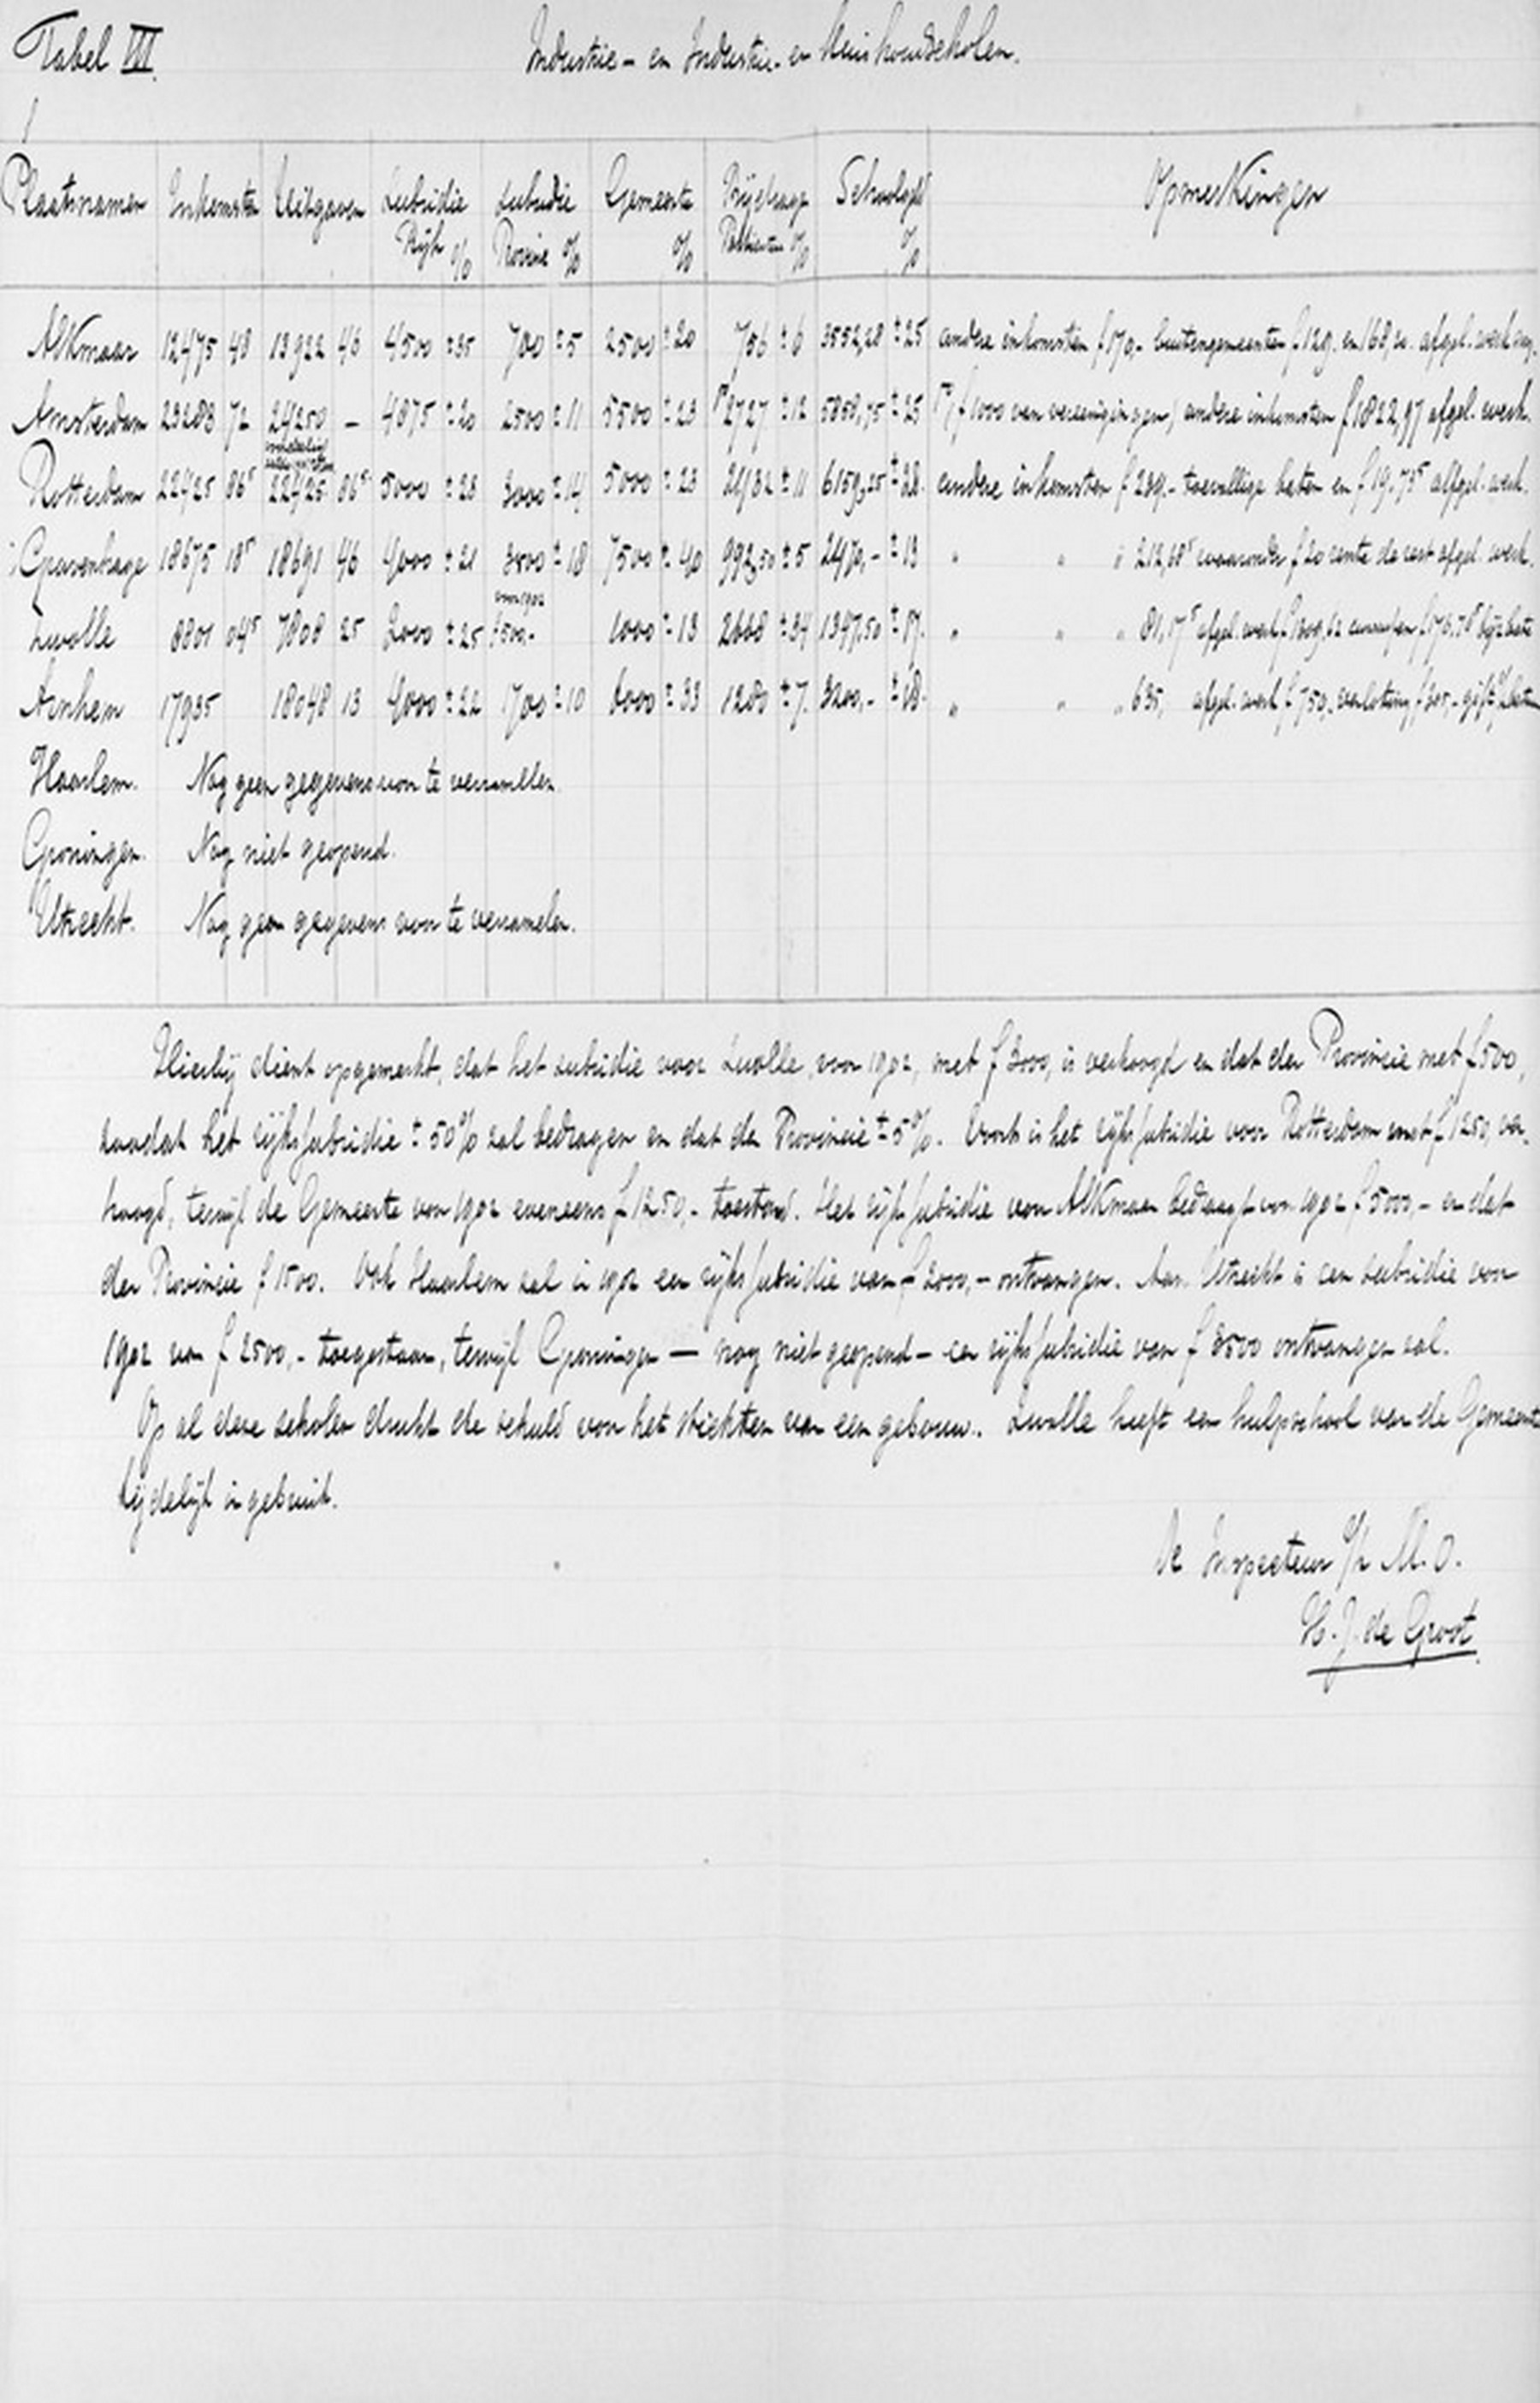 Tabel VII.
Industrie- en Industrie- en Huishoudscholen.
Plaatsnamen Inkomsten Uitgaven Subsidie Rijk % Subsidie Provincie % Gemeente % Bijdrage Particulieren % Schoolgeld % Opmerkingen
Alkmaar 12475 48 13922 46 4500 ± 35 700 ± 5 2500 ± 20 756 ± 6 3552,28 ± 25 andere inkomsten f 170,- buitengemeenten f 129. en 168,20. afgel. werk
Amsterdam 23283 72 24250 — 4875 ± 20 2500 ± 11 5500 ± 23 2727 ± 12 5858,75 ± 25 f 1000 van vereenigingen, andere inkomsten f 1822,97 afgel. werk.
Rotterdam 22425 86⁵ 22425 86⁵ 5000 ± 23 3000 ± 14 5000 ± 23 2432 ± 11 6159,25 ± 28. andere inkomsten f 239.- toevallige baten en f 19.73⁵ afgel. werk.
's Gravenhage 18675 18⁵ 18691 46 4000 ± 21 3500 ± 18 7500 ± 40 992,50 ± 5 2470,- ± 13 " " " 212,68⁵ waaronder f 20 rente de rest afgel. werk.
voor 1902
Zwolle 8801 04⁵ 7808 25 2000 ± 25 f 500.- 1000 ± 13 2668 ± 34 1347,50 ± 17. " " " 81,17⁵ afgel. werk
Arnhem 17935 18048 13 4000 ± 22 1700 ± 10 6000 ± 33 1280 ± 7. 3200,- ± 18. " " " 635, afgel. werk f 750,- verloting f 305,-
Haarlem. Nog geen gegevens van te verzamelen.
Groningen. Nog niet geopend.
Utrecht. Nog geen gegevens van te verzamelen.
Hierbij dient opgemerkt, dat het subsidie voor Zwolle, voor 1902, met f 2000, is verhoogd en dat der Provincie met f 500,
zoodat het rijkssubsidie ± 50% zal bedragen en dat der Provincie ± 5%. Voorts is het rijkssubsidie voor Rotterdam met f 1250, ver-
hoogd, terwijl de Gemeente voor 1902 eveneens f 1250,- toestond. Het rijkssubsidie van Alkmaar bedraagt voor 1902 f 5000,- en dat
der Provincie f 1500. Ook Haarlem zal in 1902 een rijkssubsidie van f 2000,- ontvangen. Aan Utrecht is een subsidie voor
1902 van f 2500,- toegestaan, terwijl Groningen — nog niet geopend — een rijkssubsidie van f 3500 ontvangen zal.
Op al deze scholen drukt de schuld voor het stichten van een gebouw. Zwolle heeft een hulpschool van de Gemeente
tijdelijk in gebruik.
De Inspecteur v/h M.O.
H. J. de Groot.